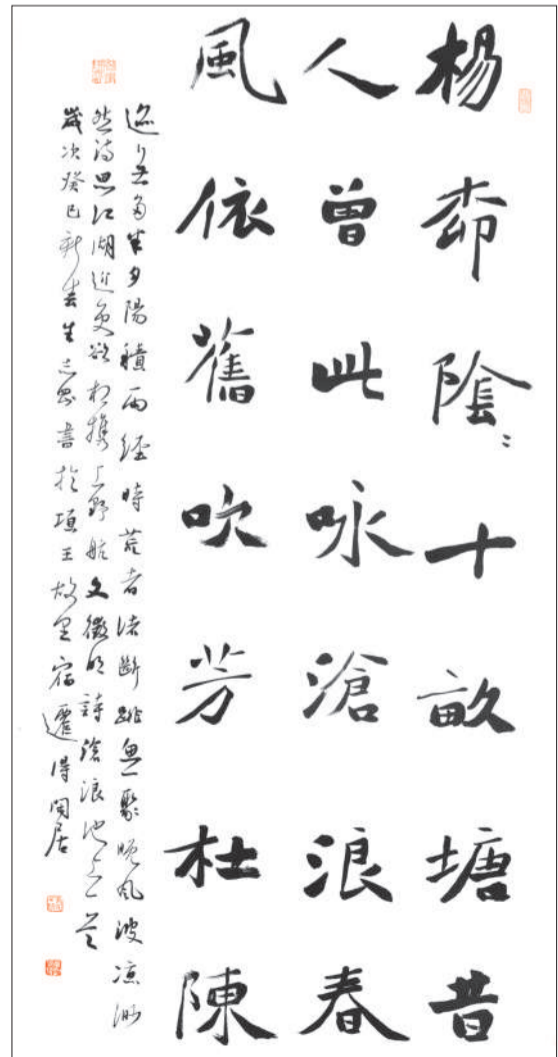 楊柳陰〻十畝塘昔
人曾此咏滄浪春
風依舊吹芳杜陳
迹無多半夕陽積雨經時荒者渚斷跳魚聚晚風波凉渺
然诗思江湖近更欲相携上野航文徵明詩滄浪池上一首
歲次癸巳新春書於項王故里宿遷得閒居